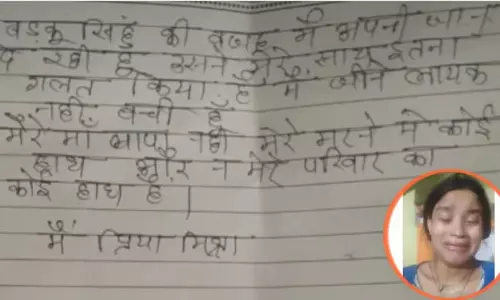 बडकू सिहं की वजह मै अपनी जान
दे रही हूँ उसने मेरे साथ इतना
गलत किया है मै जीने लायक
नही बची हूँ
मेरे माँ बाप नही मेरे मरने मे कोई
हाथ और न मेरे परिवार का
कोई हाथ है।
मैं प्रिया मिश्रा